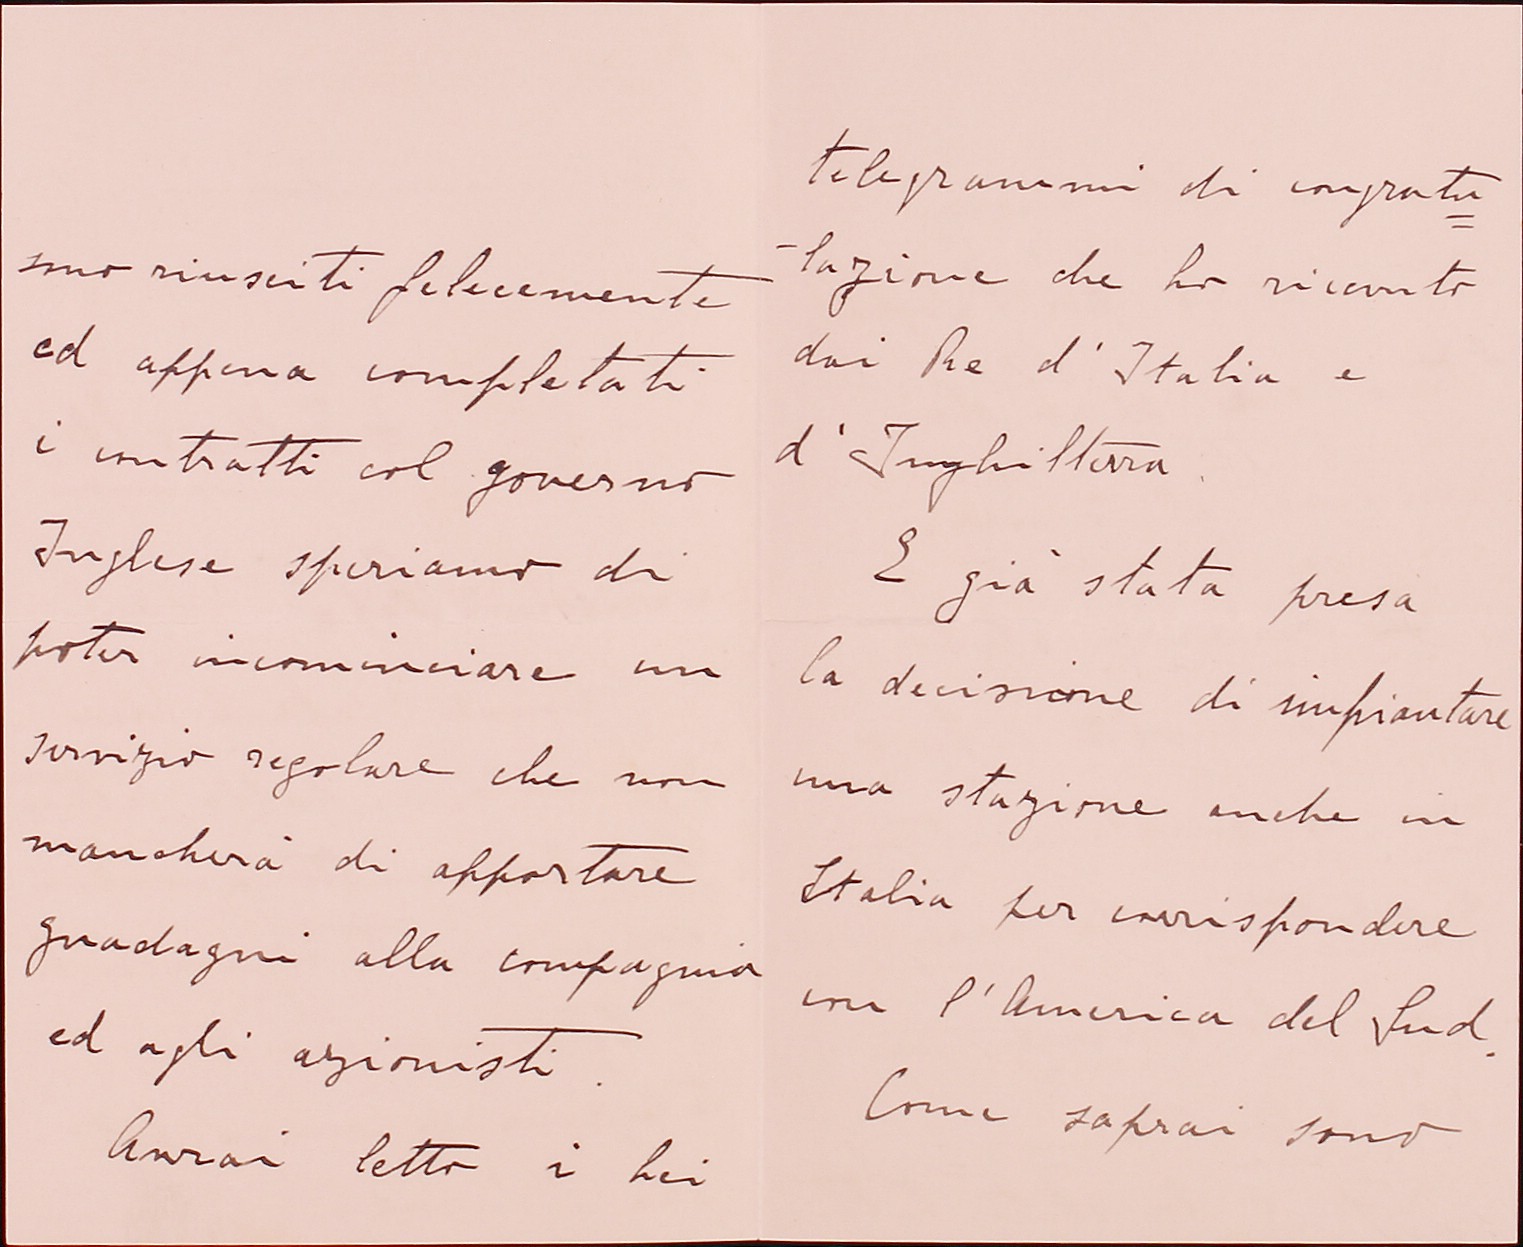 sono riusciti felecemente
ed appena completati
i contratti col governo
Inglese speriamo di
poter incominciare un
servizio regolare che non
mancherà di apportare
guadagni alla compagnia
ed agli azionisti.
Avrai letto i bei
telegrammi di congratu=
-lazione che ho ricevuto
dai Re d'Italia e
d'Inghilterra.
E già stata presa
la decisione di impiantare
una stazione anche in
Italia per corrispondere
con l'America del Sud.
Come saprai sono